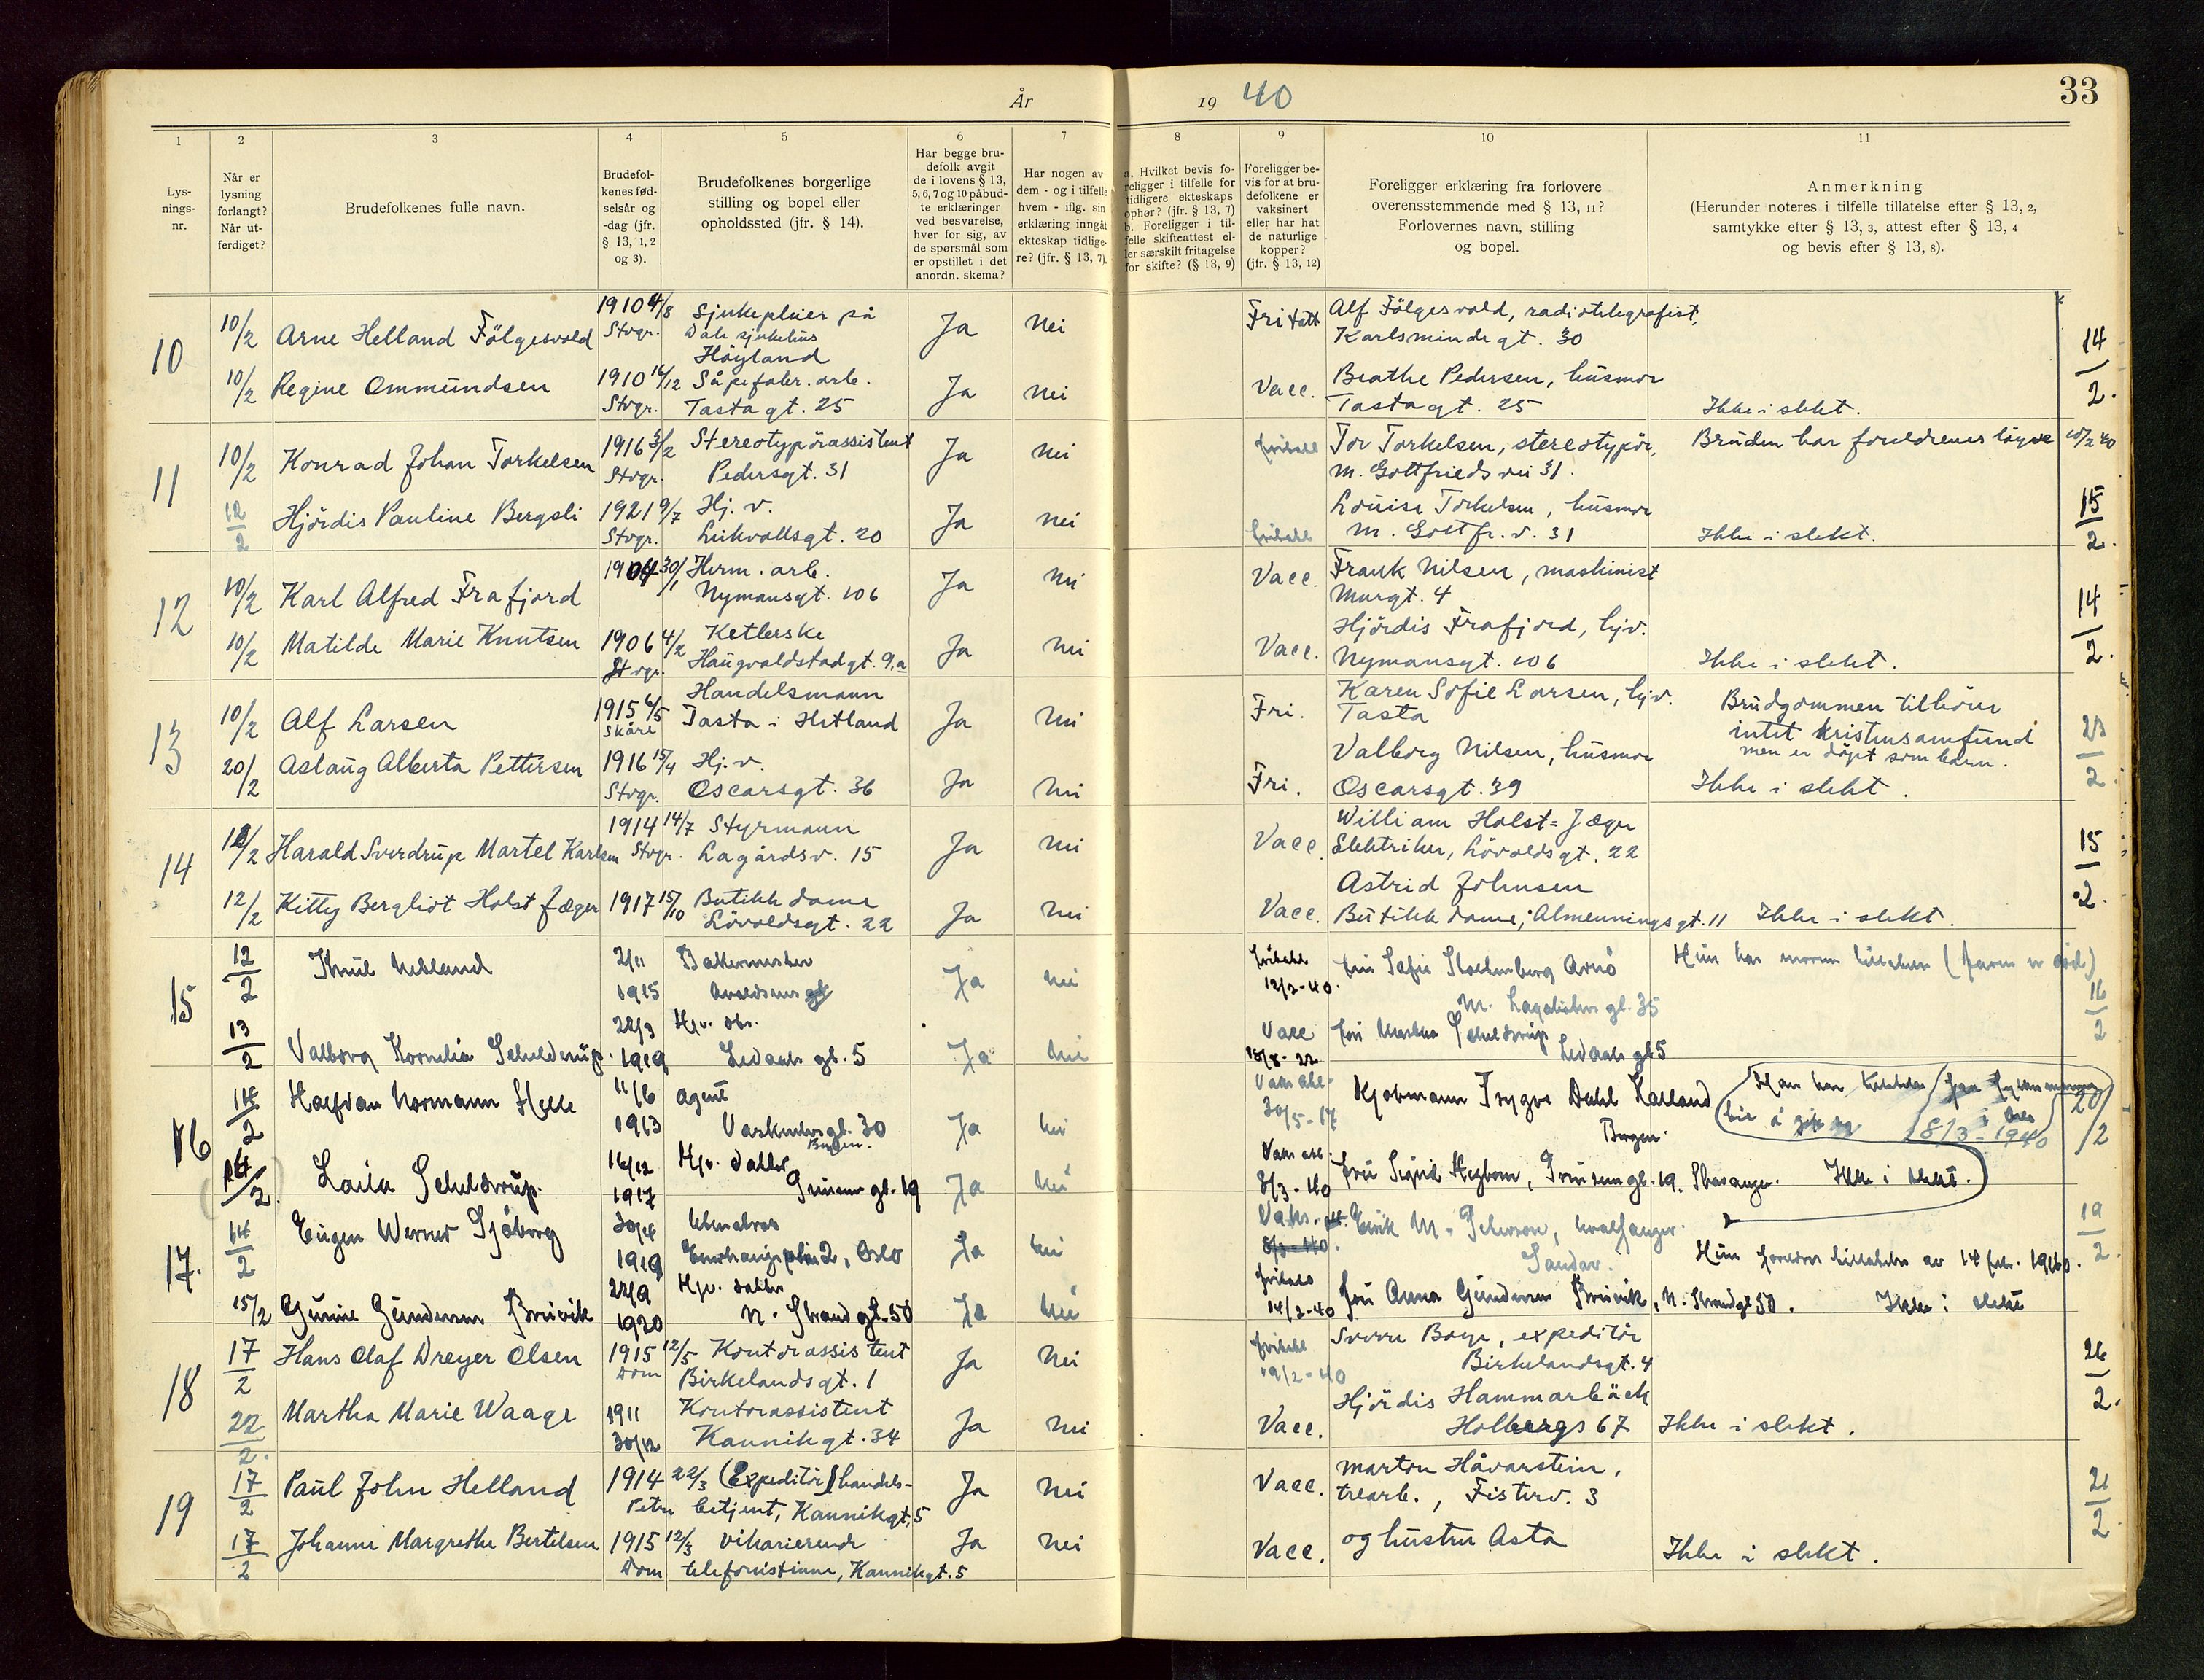 År 19 40
33
1 2 3 4 5 6 7 8 9 10 11
Lys-
nings-
nr.
Når er
lysning
forlangt?
Når ut-
ferdiget?
Brudefolkenes fulle navn.
Brudefol-
kenes fød-
selsår og
-dag (jfr.
§ 13, 1, 2
og 3).
Brudefolkenes borgerlige
stilling og bopel eller
opholdssted (jfr. § 14).
Har begge bru-
defolk avgit
de i lovens § 13,
5, 6, 7 og 10 påbud-
te erklæringer
ved besvarelse,
hver for sig, av
de spørsmål som
er opstillet i det
anordn. skema?
Har nogen av
dem - og i tilfelle
hvem - iflg. sin
erklæring inngåt
ekteskap tidlige-
re? (jfr. § 13, 7).
a. Hvilket bevis fo-
religger i tilfelle for
tidligere ekteskaps
ophør? (jfr. § 13, 7)
b. Foreligger i til-
felle skifteattest el-
ler særskilt fritagelse
for skifte? (§ 13, 9)
Foreligger be-
vis for at bru-
defolkene er
vaksinert
eller har hat
de naturlige
kopper?
(jfr. § 13, 12)
Foreligger erklæring fra forlovere
overensstemmende med § 13, 11?
Forlovernes navn, stilling
og bopel.
Anmerkning
(Herunder noteres i tilfelle tillatelse efter § 13, 2,
samtykke efter § 13, 3, attest efter § 13, 4
og bevis efter § 13, 8).
10
10/2 Arne Helland Fölgesvold 1910 4/8 Stvgr. Sjukepleier på
Dale sjukehus
Høyland
Ja Nei Fritatt Alf Fölgesvold, radiotelegrafist,
Karlsminde gt. 30
14/2.
10/2 Regine Ommundsen 1910 16/12 Stvgr. Såpefabr. arb.
Tastagt. 25
Ja Nei Vacc. Beathe Pedersen, husmor
Tastagt. 25 Ikke i slekt.
11
10/2 Konrad Johan Torkelsen 1916 3/2 Stvgr. Stereotypörassistent
Pedersgt. 31
Ja Nei fritatt Tor Torkelsen, stereotypör,
M. Gottfrieds vei 31.
Bruden har foreldrenes løyve 10/2 40
12/2 Hjördis Pauline Bergsli 1921 9/7 Stvgr. Hj. v.
20
Ja Nei fritatt Louise Torkelsen, husmor
M. Gottfr. v. 31 Ikke i slekt.
15/2.
12
10/2 Karl Alfred Frafjord 1904 30/1 Herm. arb.
Nymansgt. 106
Ja Nei Vacc. Frank Nilsen, maskinist
Murgt. 4
14/2.
10/2 Matilde Marie Knutsen 1906 4/2 Stvgr. Ketlerske
Haugvaldstadgt. 9.a
Ja Nei Vacc. Hjördis Frafjord, hjv.
Nymansgt. 106 Ikke i slekt.
13
10/2 Alf Larsen 1915 6/5 Skåre Handelsmann
Tasta i Hetland
Ja Nei Fri. Karen Sofie Larsen, hjv.
Tasta
Brudgommen tilhörer
intet kristensamfund
men er döpt som barn.
20/2 Aslaug Alberta Pettersen 1916 15/4 Stvgr. Hj. v.
Oscarsgt. 36
Ja Nei Fri. Valborg Nilsen, husmor
Oscarsgt. 39 Ikke i slekt.
14
12/2 Harald Sverdrup Martel Karlsen 1914 14/7 Stvgr. Styrmann
Lagårdsv. 15
Ja Nei Vacc. William Holst-Jæger
Elektriker, Lövoldsgt. 22
15/2.
12/2 Kitty Bergliot Holst Jæger 1917 15/10 Butikkdame
Lövoldsgt. 22
Ja Nei Vacc. Astrid Johnsen
Butikkdame, Almenningsgt. 11 Ikke i slekt.
15
12/2 2/11 1915 Bakermester
Ja Nei fritatt 12/2-40.
35
16/2
13/2 Valborg Kornelia Schelderup. 22/3 1919 Hjv. dtr.
Ledaals gt. 5
Ja Nei Vacc Schelderup
Ledaals gt 5
16
14/2 Halfdan Normann Helle 11/6 1913 Agent
30
Bergen.
Ja Nei 30/5-17 Trygve Dahl Kalland
Bergen.
Han har
18/3-1940
20/2
14/2. Laila Schelderup. 16/12 1917 Hjv. datter
19
Ja Nei 8/3-40 Fru Sigrid 19. Stavanger. Ikke i slekt.
17.
14/2 Eugen Werner Sjöberg 30/4 1919
2, Oslo
Ja Nei Vaks. Eirik M. Peterson, hvalfanger.
Sandar.
Hun foreldres tillatelse av 14 febr. 1940.
19/2.
15/2 Gunnie Gundersen Bruvik 22/9 1920 Hjv. datter
N. Strand gt. 50
Ja Nei fritatt 14/2-40 Fru Anna Gundersen Bruvik, N. Strandgt 50. Ikke i slekt
18
17/2 Hans Olaf Dreyer Olsen 1915 12/5 Dom Kontorassistent
Birkelandsgt. 1
Ja Nei fritatt 19/2-40 Sverre Boye, expeditör
Birkelandsgt. 4
26/2.
22/2. Martha Marie Waage 1911 30/12 Kontorassistent
Kannikgt. 34
Ja Nei Vacc. Hjördis Hammarbäck
Holbergs 67 Ikke i slekt.
19
17/2 Paul John Helland 1914 22/3 Petri (Expeditör) handels-
betjent, Kannikgt. 5
Ja Nei Vacc. Marton Håvarstein,
trearb., Fisterv. 3
21/2
17/2 Johanne Margrethe Bertelsen 1915 12/3 Dom vikarierende
telefonistinne, Kannikgt. 5
Ja Nei Vacc. og hustru Asta
Ikke i slekt.